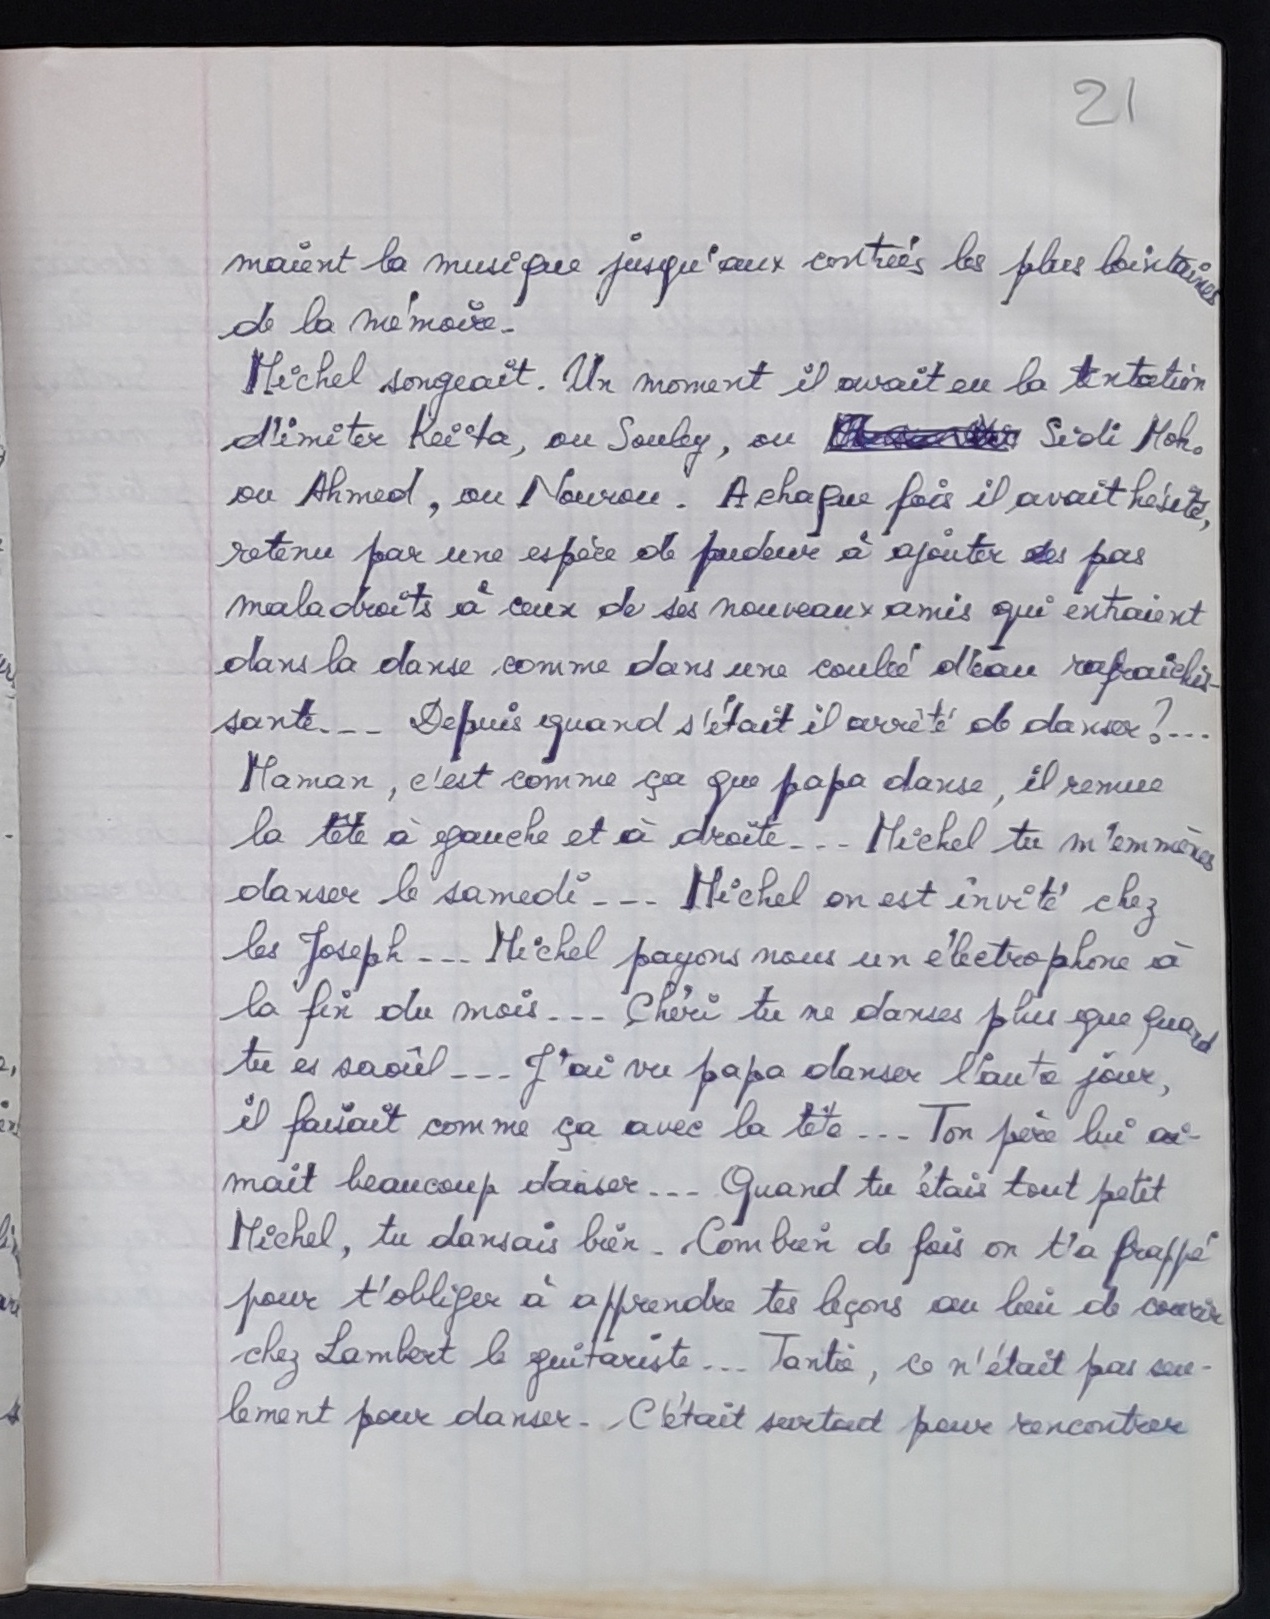 21
maient la musique jusqu'aux contrées les plus lointaines
de la mémoire.
Michel songeait. Un moment il avait eu la tentation
d'imiter Keïta, ou Souley, ou Sidi Moh.
ou Ahmed, ou Nourou. A chaque fois il avait hésité,
retenu par une espèce de pudeur à ajouter des pas
maladroits à ceux de ses nouveaux amis qui entraient
dans la danse comme dans une coulée d'eau rafraîchis-
sante... Depuis quand s'était il arrêté de danser?...
Maman, c'est comme ça que papa danse, il remue
la tête à gauche et à droite... Michel tu m'emmènes
danser le samedi... Michel on est invité chez
les Joseph... Michel payons nous un électrophone à
la fin du mois... Chéri tu ne danses plus que quand
tu es saoûl... J'ai vu papa danser l'autre jour,
il faisait comme ça avec la tête... Ton père lui ai-
mait beaucoup danser... Quand tu étais tout petit
Michel, tu dansais bien. Combien de fois on t'a frappé
pour t'obliger à apprendre tes leçons au lieu de courir
chez Lambert le guitariste... Tantie, ce n'était pas seu-
lement pour danser. C'était surtout pour rencontrer